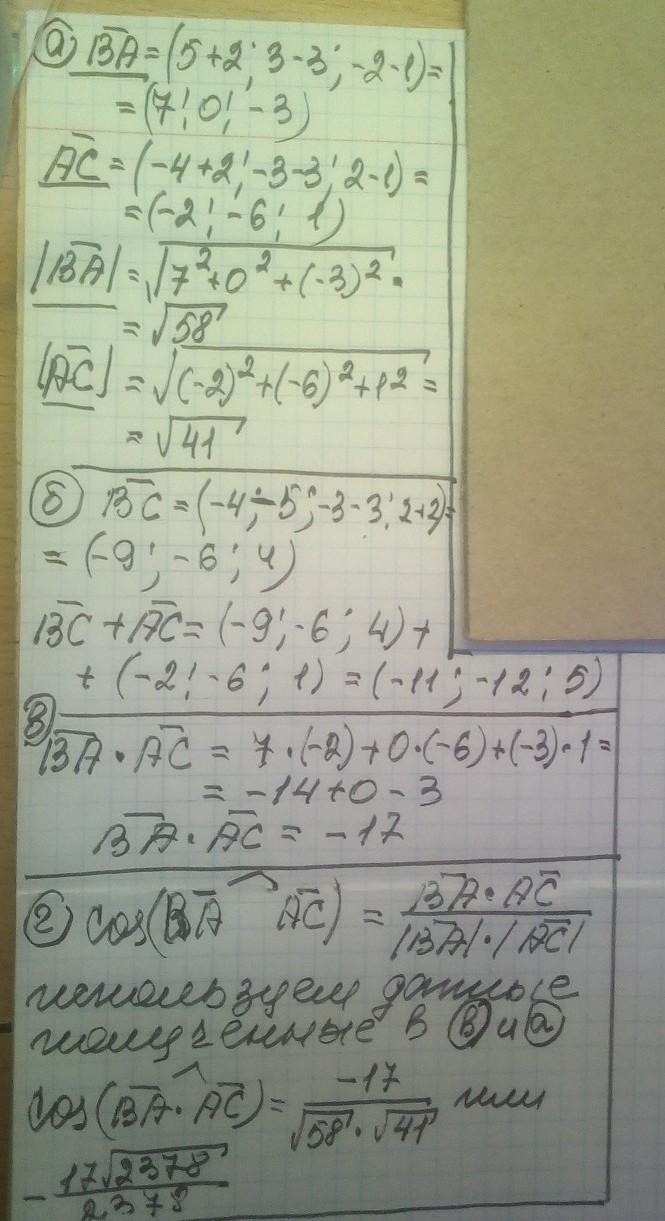 а) B̅A̅ = (5+2; 3-3; -2-1) =
= (7; 0; -3)
A̅C̅ = (-4+2; -3-3; 2-1) =
= (-2; -6; 1)
|B̅A̅| = √(7²+0²+(-3)²) =
= √58
|A̅C̅| = √((-2)²+(-6)²+1²) =
= √41
б) B̅C̅ = (-4;-5; -3-3; 2+2)=
= (-9; -6; 4)
B̅C̅ + A̅C̅ = (-9; -6; 4) +
+ (-2; -6; 1) = (-11; -12; 5)
в)
B̅A̅ · A̅C̅ = 7·(-2)+0·(-6)+(-3)·1 =
= -14+0-3
B̅A̅ · A̅C̅ = -17
г) cos(B̅A̅ ^ A̅C̅) = B̅A̅ · A̅C̅ / |B̅A̅|·|A̅C̅|
используем данные
полученные в в) и а)
cos(B̅A̅ ^· A̅C̅) = -17 / √58 · √41 или
- 17√2378 / 2378